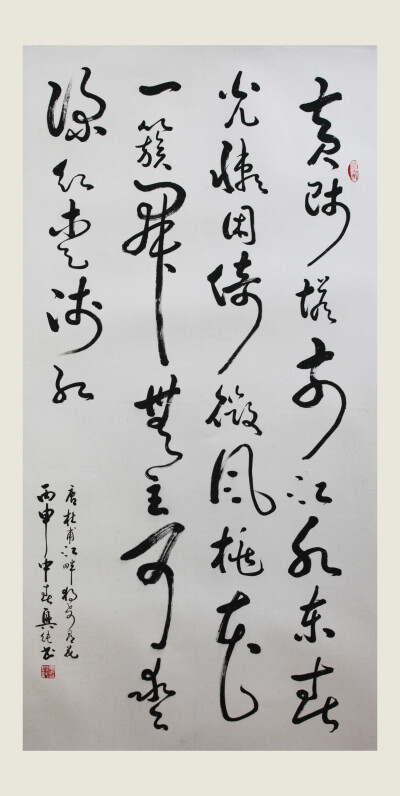 黄师塔前江水东春
光懒困倚微风桃花
一簇開無主可爱
深红爱浅红
唐杜甫江畔独步寻花
丙申中春興纯书